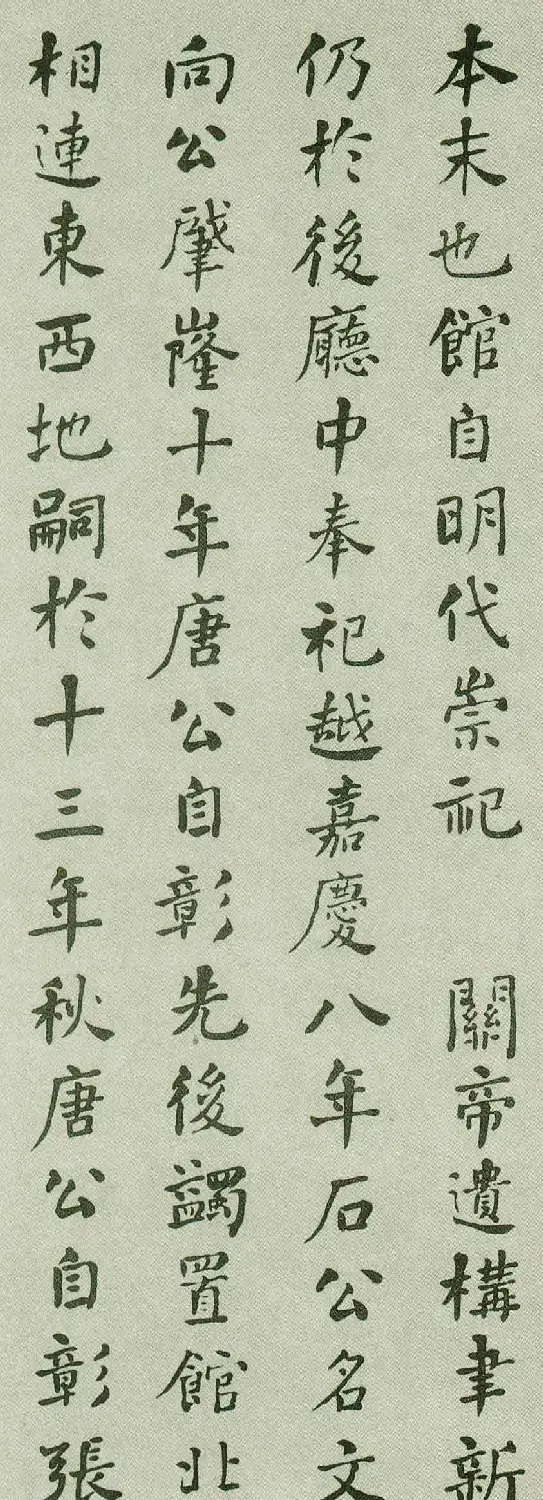 本末也館自明代崇祀 關帝遺構聿新
仍於後廳中奉祀越嘉慶八年石公名文
向公肇隆十年唐公自彰先後蠲置館北
相連東西地嗣於十三年秋唐公自彰張